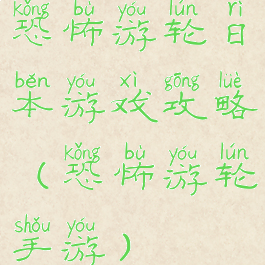 kǒng bù yóu lún rì
恐怖游轮日
běn yóu xì gōng lüè
本游戏攻略
kǒng bù yóu lún
(恐怖游轮
shǒu yóu
手游)